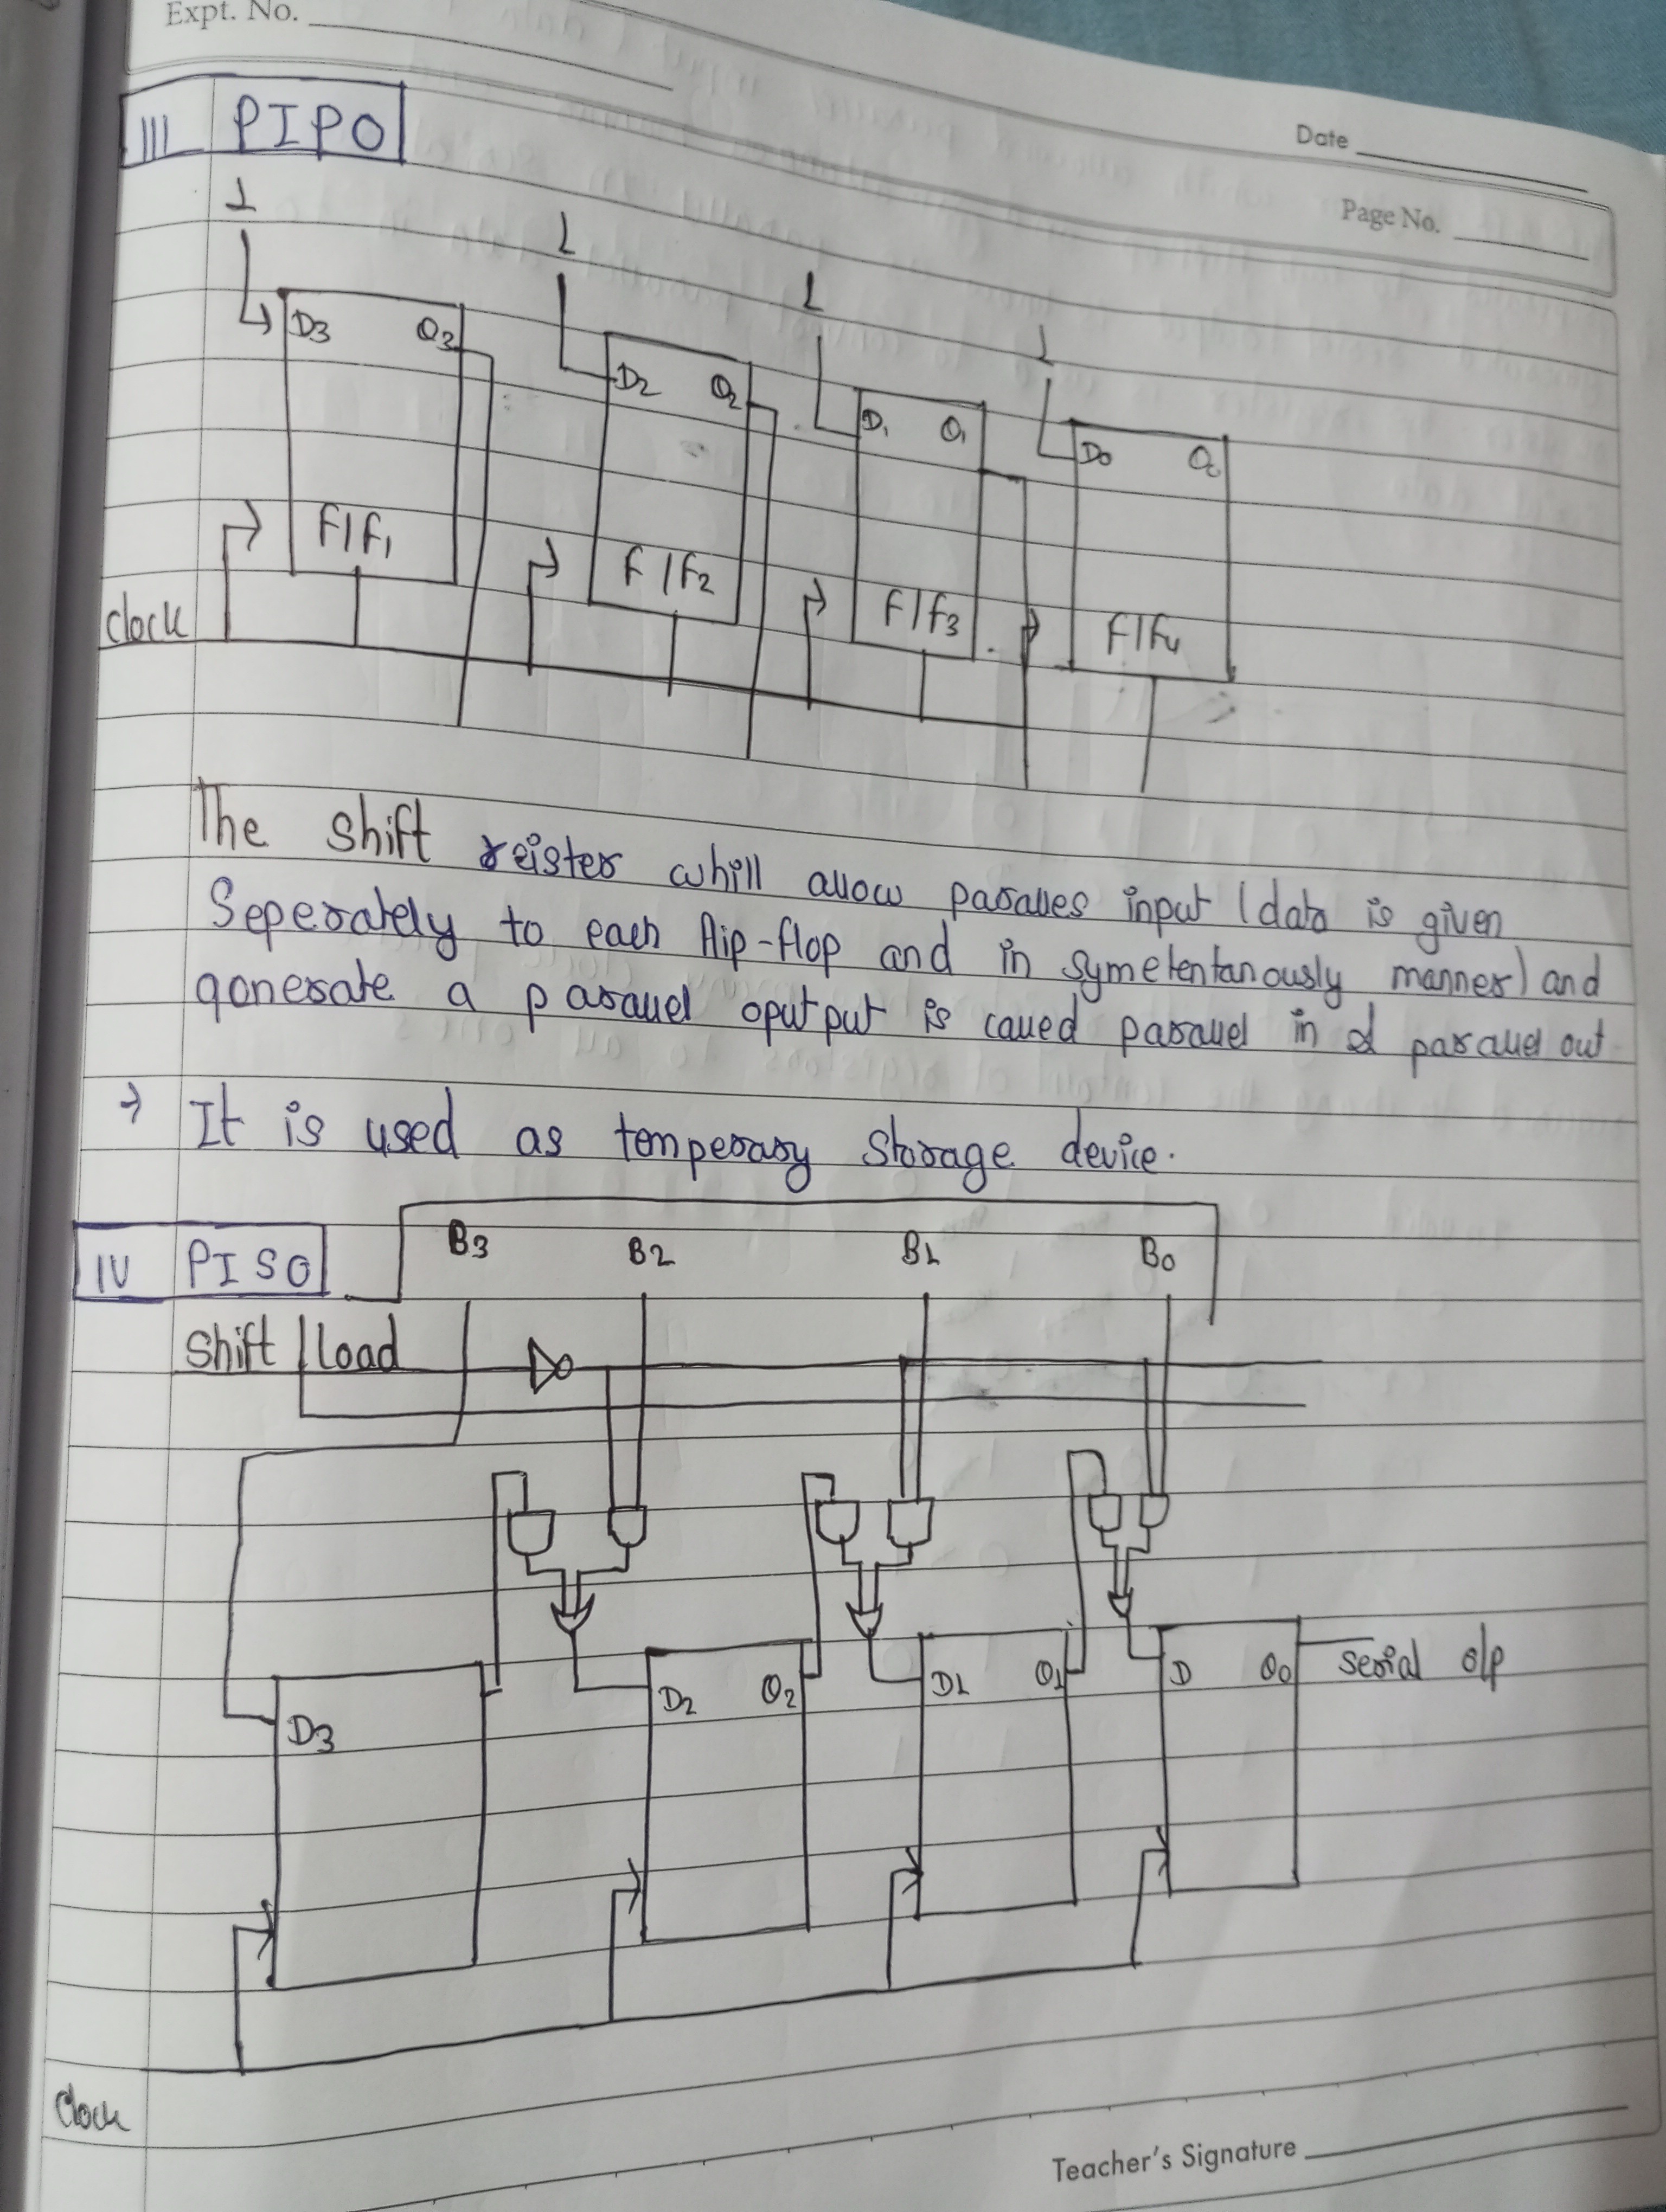 Expt. No.
Date
Page No.
III PIPO
1 1 1 1
D3 Q3 D2 Q2 D1 Q1 D0
F/F1 F/F2 F/F3 F/F4
clock
The shift reister whill allow paralles input (data is given
Seperately to each flip-flop and in symetentanously manner) and
gonerate a parallel oputput is called parallel in & parallel out
→ It is used as temperary storage device.
B3 B2 B1 B0
IV PISO
Shift/load
D3 D2 Q2 D1 Q1 D Q0 serial o/p
Clock
Teacher's Signature